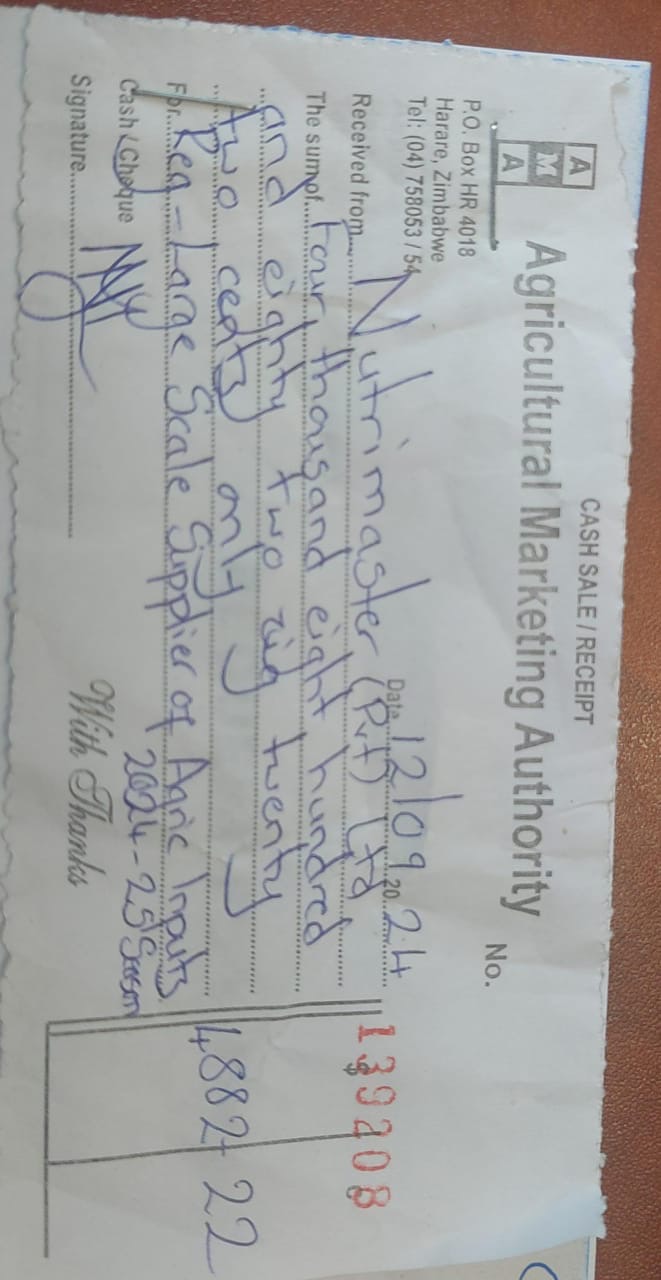 CASH SALE / RECEIPT
A
M
A
Agricultural Marketing Authority
No. 139208
P.O. Box HR 4018
Harare, Zimbabwe
Tel: (04) 758053 / 54
Date 12/09 20 24
Received from Nutrimaster (Pvt) Ltd
The sum of four thousand eight hundred
and eighty two zig twenty
two cents only
$ 4882 22
For Reg - Large Scale Supplier of Agric Inputs
2024-25 Season
Cash / Cheque
Signature
With Thanks